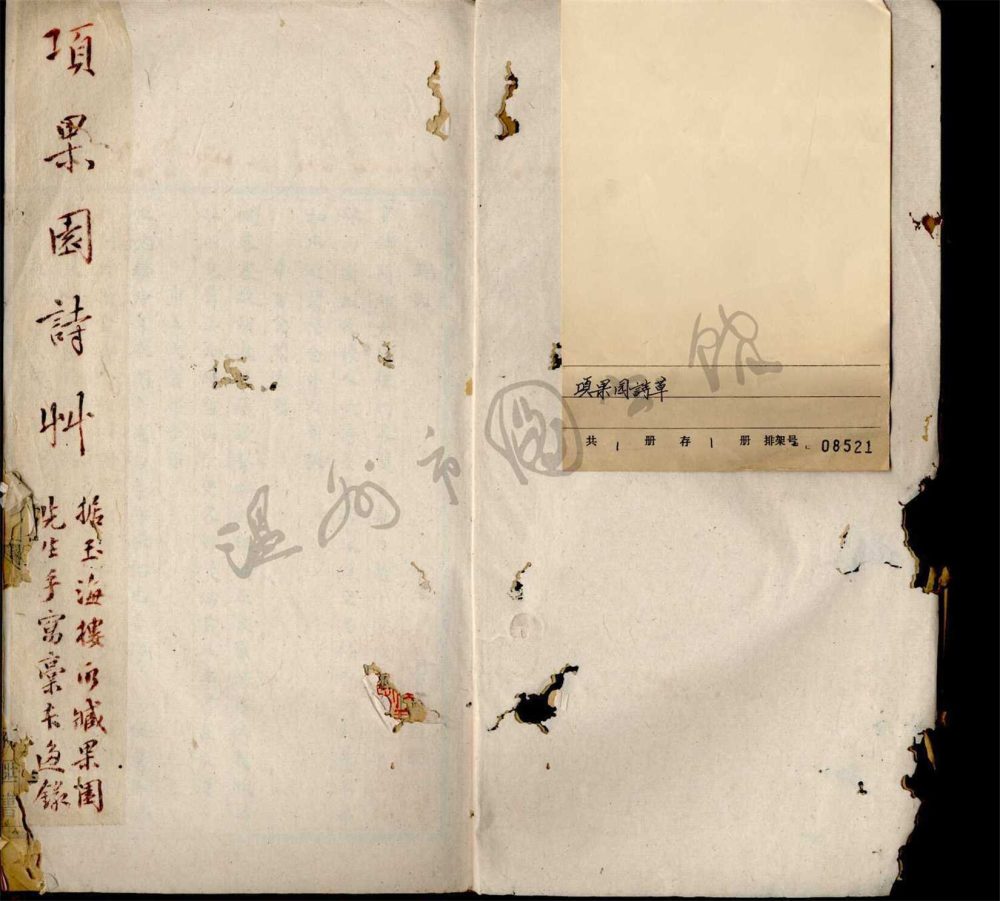 項果園詩艸
据玉海樓所臧果園
先生手寫稾本迻錄
項果园詩草
共 1 册 存 1 册 排架号 08521
温州市圖书馆